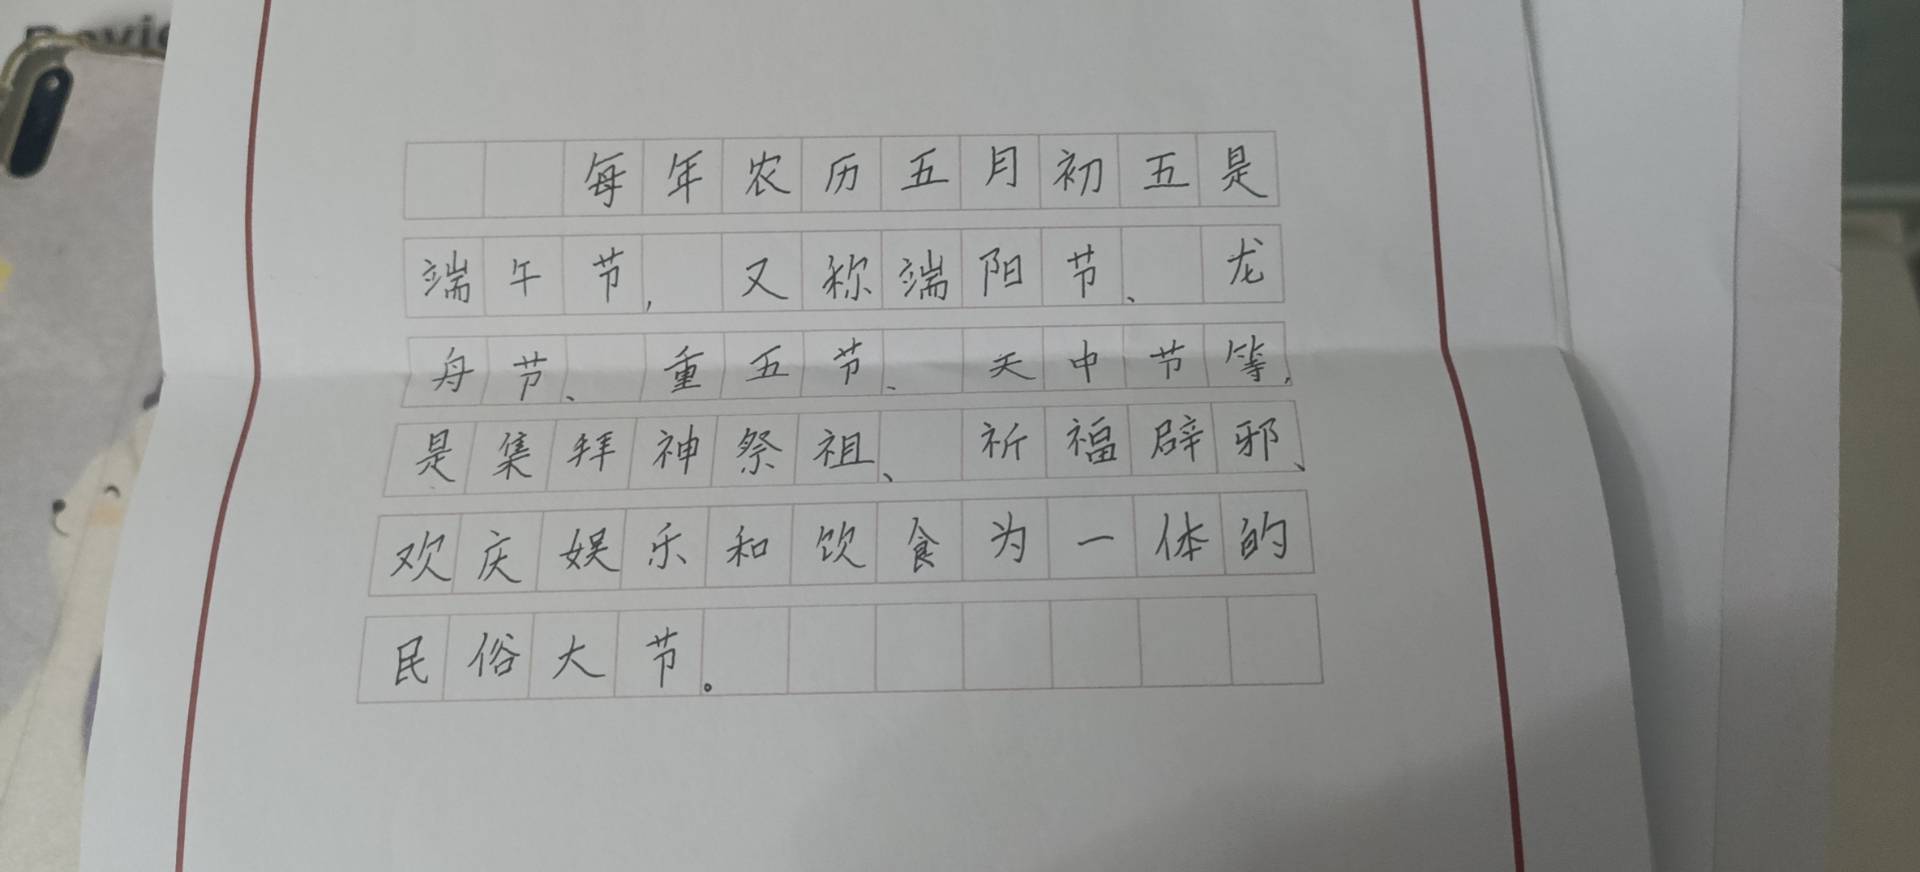 每年农历五月初五是
端午节，又称端阳节、龙
舟节、重五节、天中节等，
是集拜神祭祖、祈福辟邪、
欢庆娱乐和饮食为一体的
民俗大节。